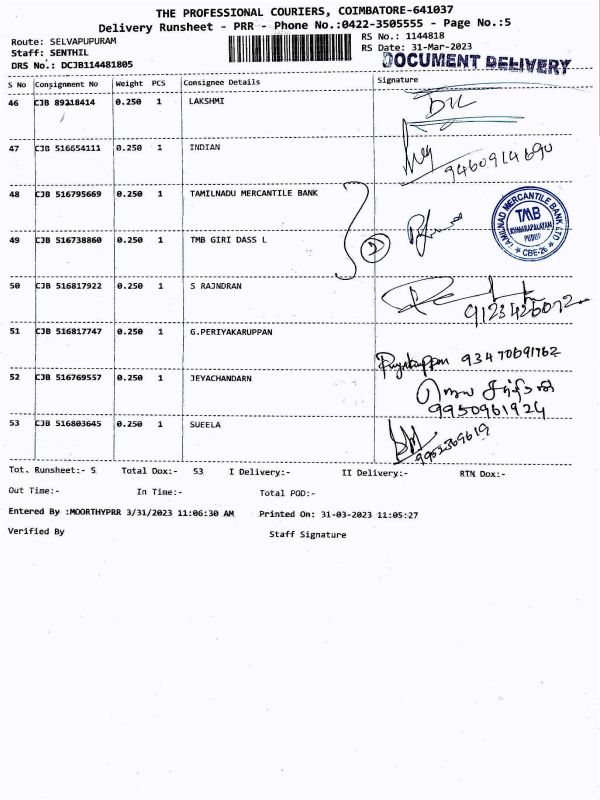 THE PROFESSIONAL COURIERS, COIMBATORE-641037
Delivery Runsheet - PRR - Phone No.:0422-3505555 - Page No.:5
Route: SELVAPUPURAM RS No.: 1144818
Staff: SENTHIL RS Date: 31-Mar-2023
DRS No.: DCJB114481805 DOCUMENT DELIVERY
S No Consignment No Weight PCS Consignee Details Signature
46 CJB 89218414 0.250 1 LAKSHMI
47 CJB 516654111 0.250 1 INDIAN
9460914690
48 CJB 516795669 0.250 1 TAMILNADU MERCANTILE BANK
TAMILNAD MERCANTILE BANK LTD
TMB
KUMARAPALAYAM
CBE-26
49 CJB 516738860 0.250 1 TMB GIRI DASS L
2
50 CJB 516817922 0.250 1 S RAJNDRAN
9123426072
51 CJB 516817747 0.250 1 G.PERIYAKARUPPAN
Periyakaruppan 93470691762
52 CJB 516769557 0.250 1 JEYACHANDARN
9950961924
53 CJB 516803645 0.250 1 SUEELA
9952369619
Tot. Runsheet:- 5 Total Dox:- 53 I Delivery:- II Delivery:- RTN Dox:-
Out Time:- In Time:- Total POD:-
Entered By :MOORTHYPRR 3/31/2023 11:06:30 AM Printed On: 31-03-2023 11:05:27
Verified By Staff Signature